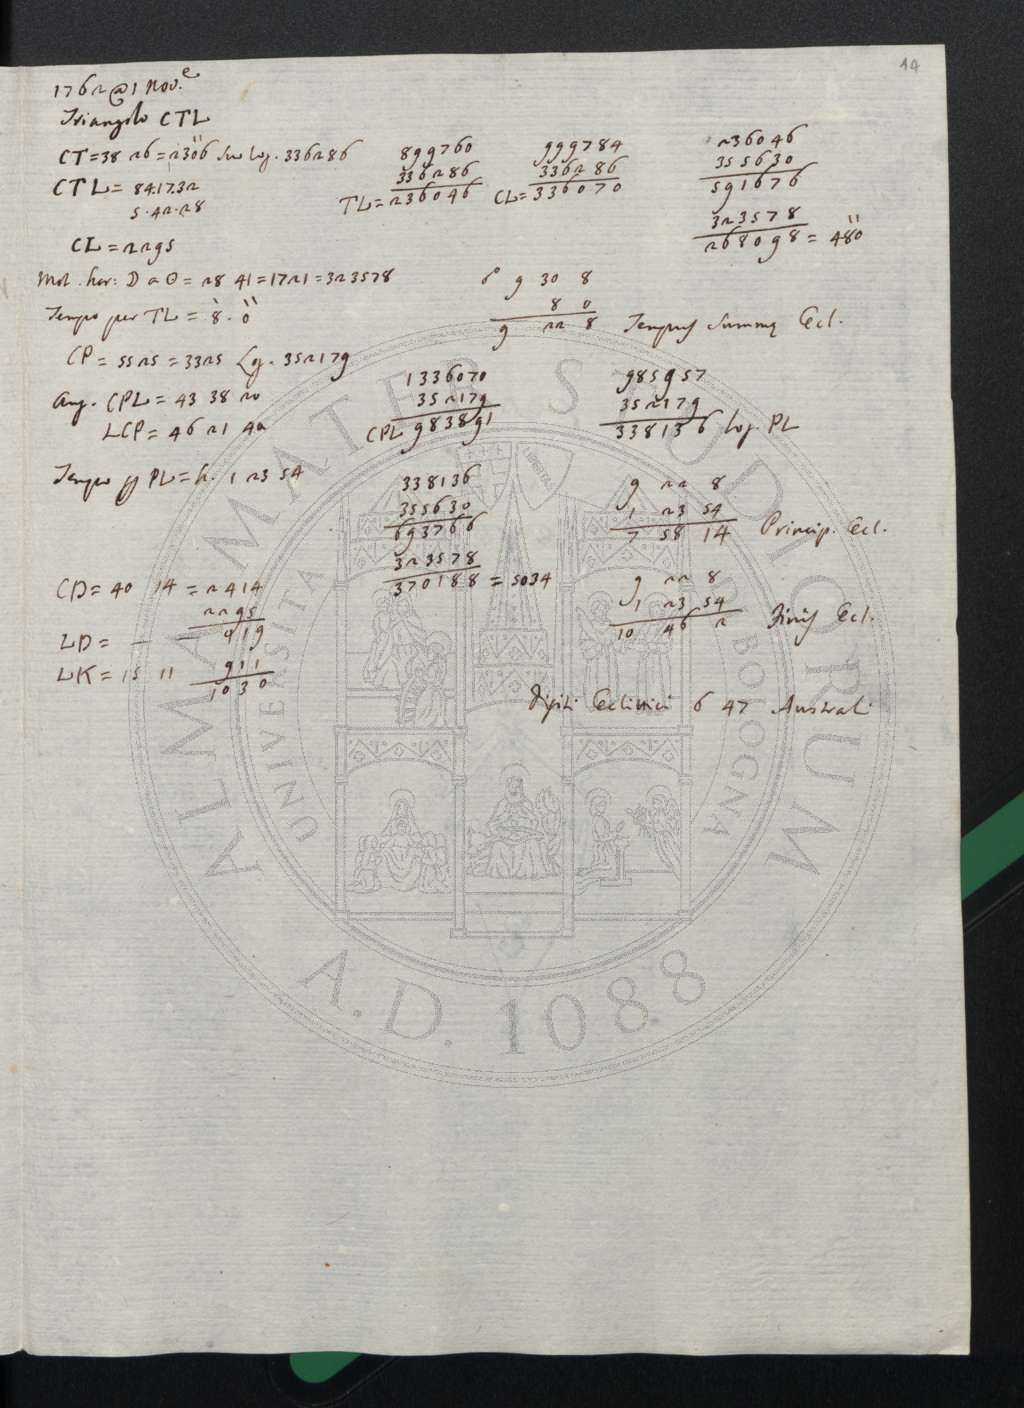 44
1762 @ 1 Nov.e
Triangolo CTL
CT = 38 26 = 2306'' Suo Log. 336286
CTL = 84.17.32
5.42.28
899760
336286
TL = 236046
999784
336286
CL = 336070
236046
355630
591676
323578
268098 = 480''
CL = 2295
Mot. hor: D a ☉ = 28 41 = 1721 = 323578
Tempo per TL = 8'. 0''
☌ 9 30 8
8 0
9 22 8 Tempus Summæ Ecl.
CP = 55 25 = 3325 Log. 352179
Ang. CPL = 43 38 20
LCP = 46 21 40
1336070
352179
CPL 983891
985957
352179
338136 Log. PL
Tempo p PL = h. 1 23 54
338136
355630
693766
323578
370188 = 5034
9 22 8
1 23 54
7 58 14 Princip. Ecl.
CD = 40 14 = 2414
2295
LD = — — 419
LK = 15 11 911
1030
9 22 8
1 23 54
10 46 2 Finis Ecl.
Digiti Eclittici 6 47 Australi
ALMA MATER STUDIORUM
UNIVERSITÀ DI BOLOGNA
LIBERTAS
A.D. 1088